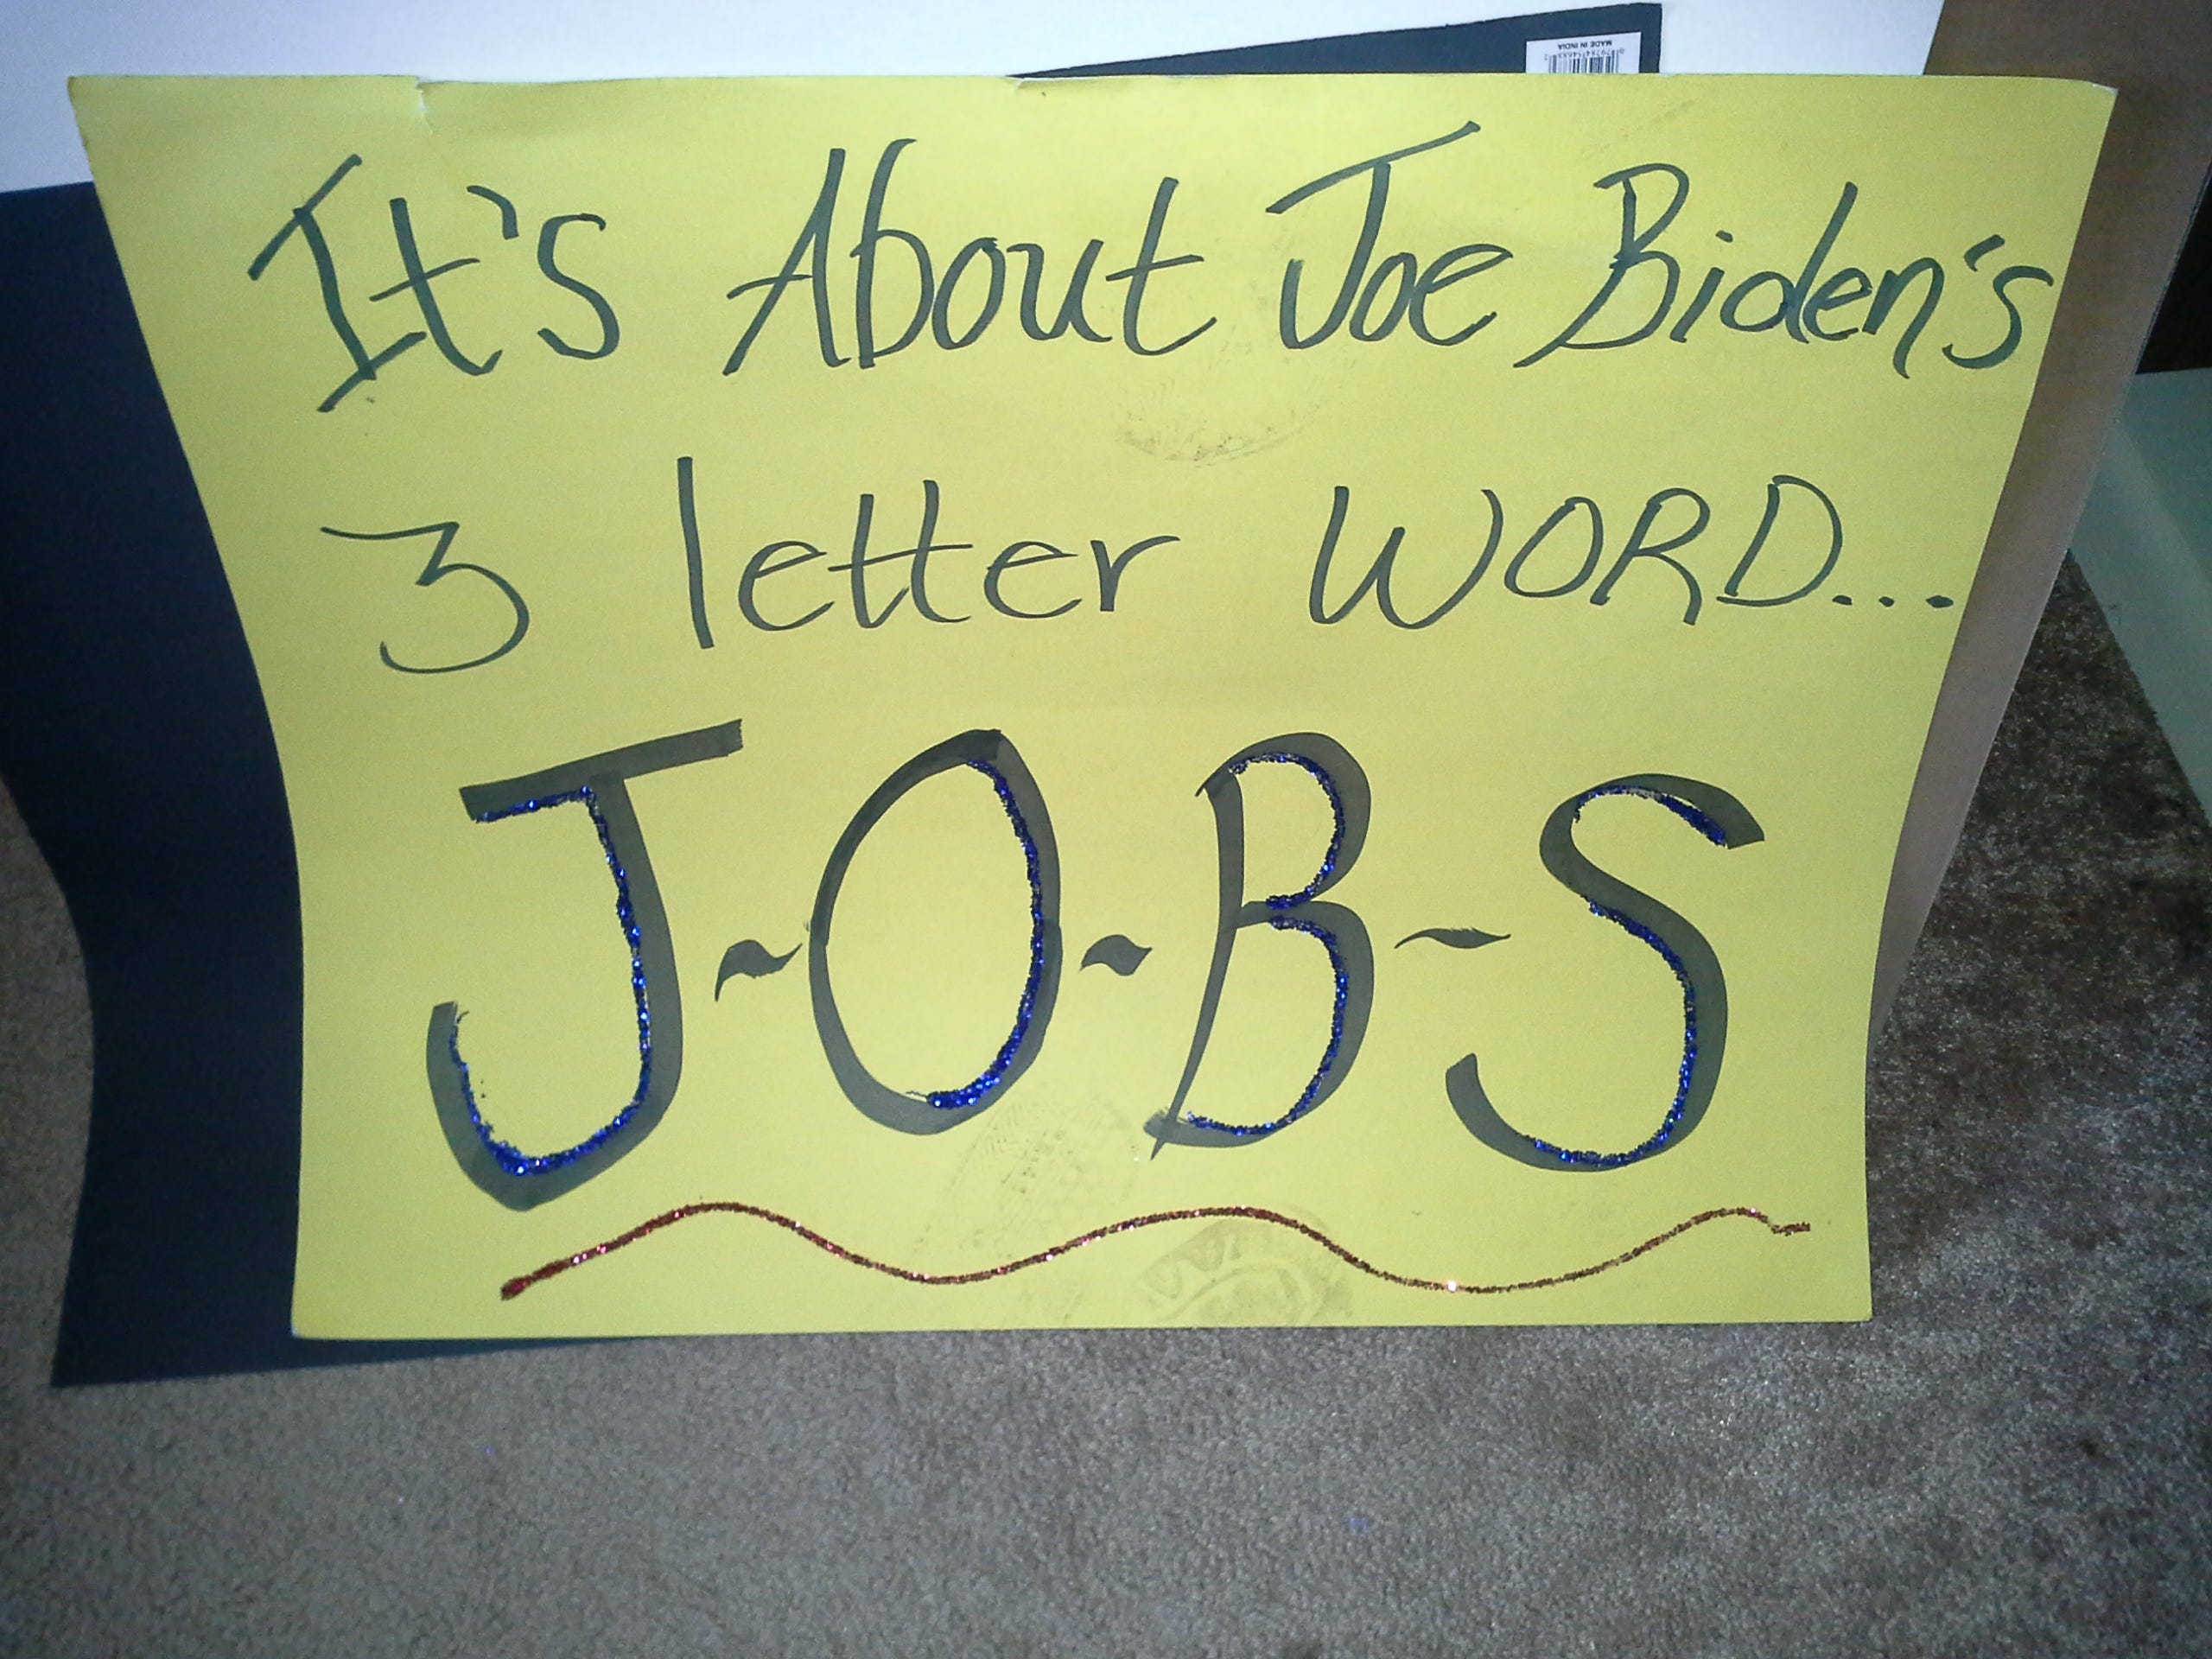 MADE IN INDIA
It's About Joe Biden's
3 letter WORD...
J-O-B-S